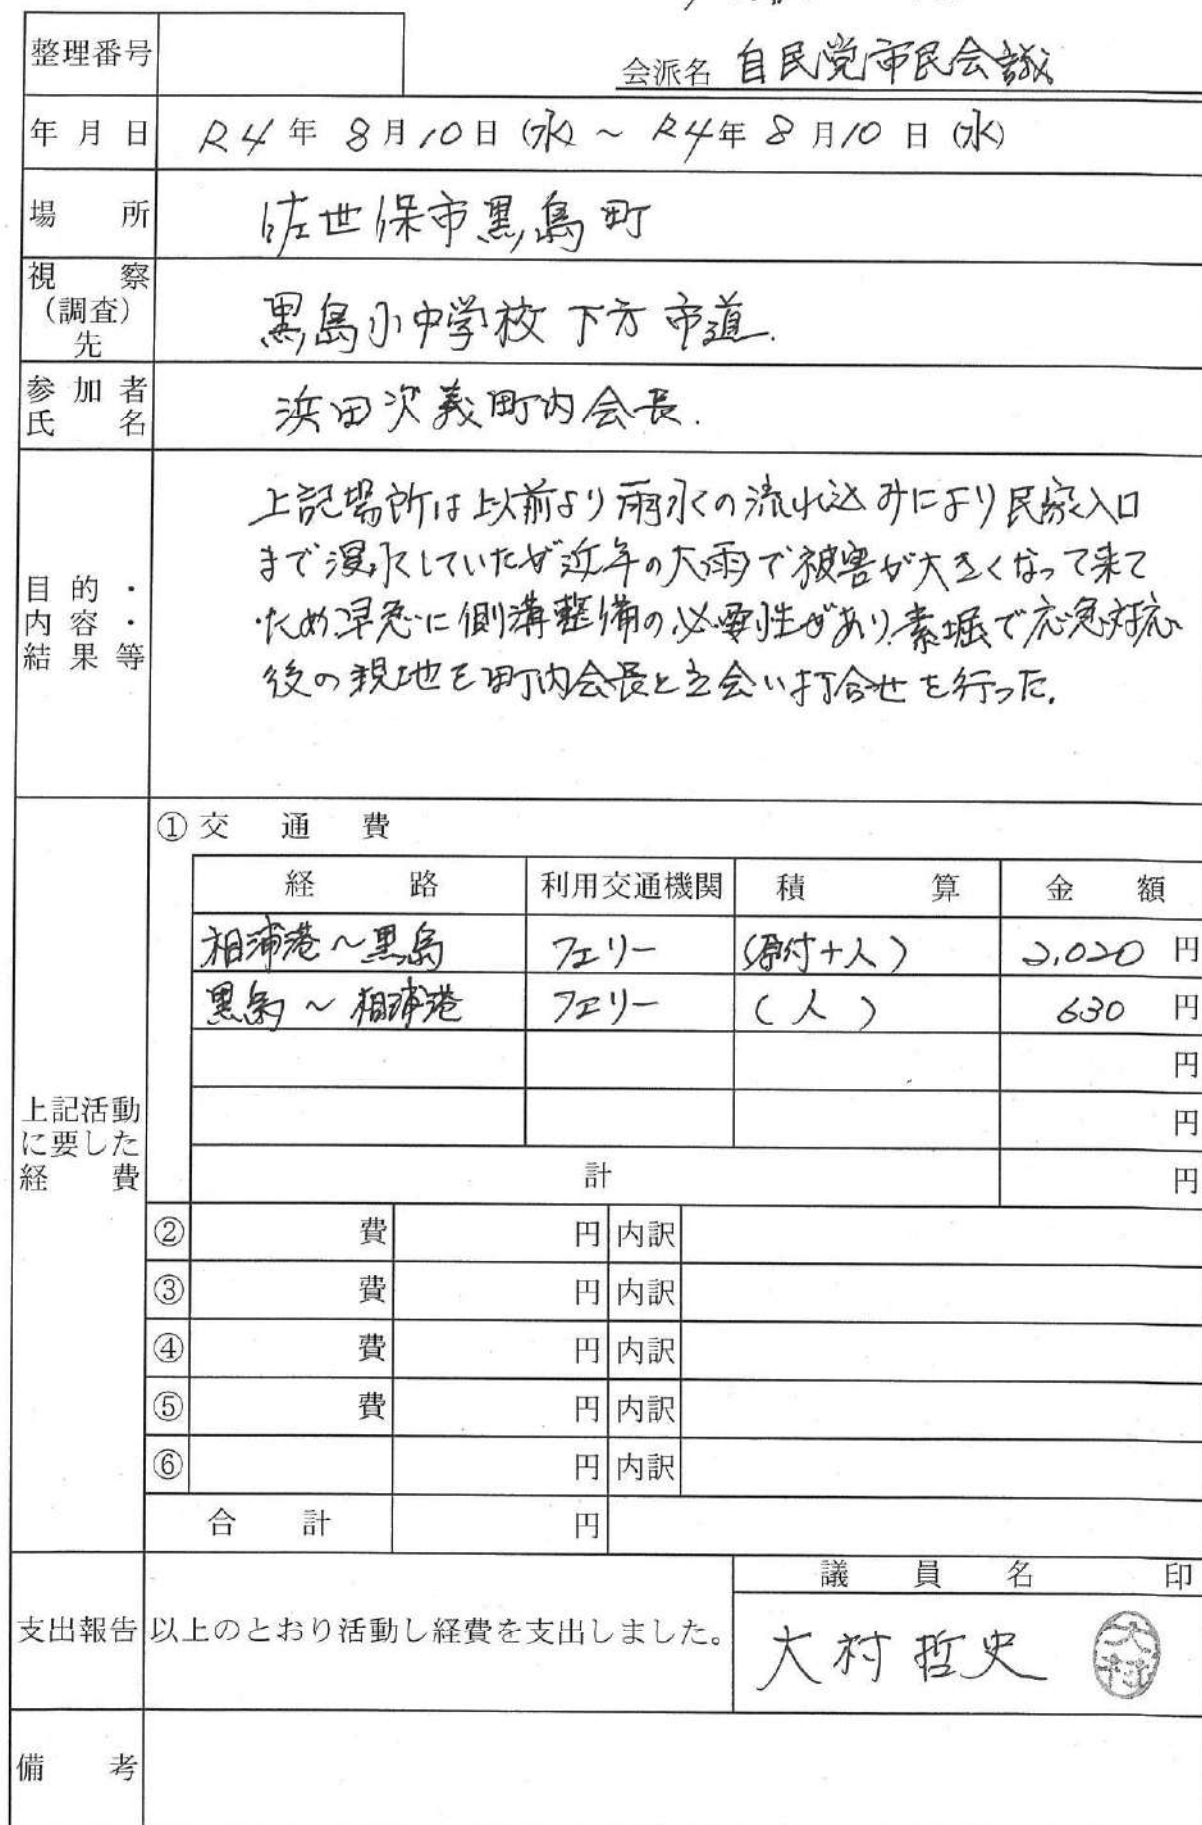 整理番号
会派名 自民党市民会議
年月日 R4年 8月10日(水) ~ R4年 8月10日(水)
場所 佐世保市黒島町
視察(調査)先 黒島小中学校下方市道.
参加者氏名 浜田次義町内会長.
目的・内容・結果等
上記場所は以前より雨水の流れ込みにより民家入口
まで浸水していたが近年の大雨で被害が大きくなって来て
ため早急に側溝整備の必要性があり、素堀で応急対応
後の現地を町内会長と立会い打合せを行った.
上記活動に要した経費
①交通費
経路 利用交通機関 積算 金額
相浦港~黒島 フェリー (原付+人) 2,020 円
黒島~相浦港 フェリー (人) 630 円
円
円
計 円
② 費 円 内訳
③ 費 円 内訳
④ 費 円 内訳
⑤ 費 円 内訳
⑥ 円 内訳
合計 円
議員名 印
支出報告 以上のとおり活動し経費を支出しました。
大村哲史 大村
備考